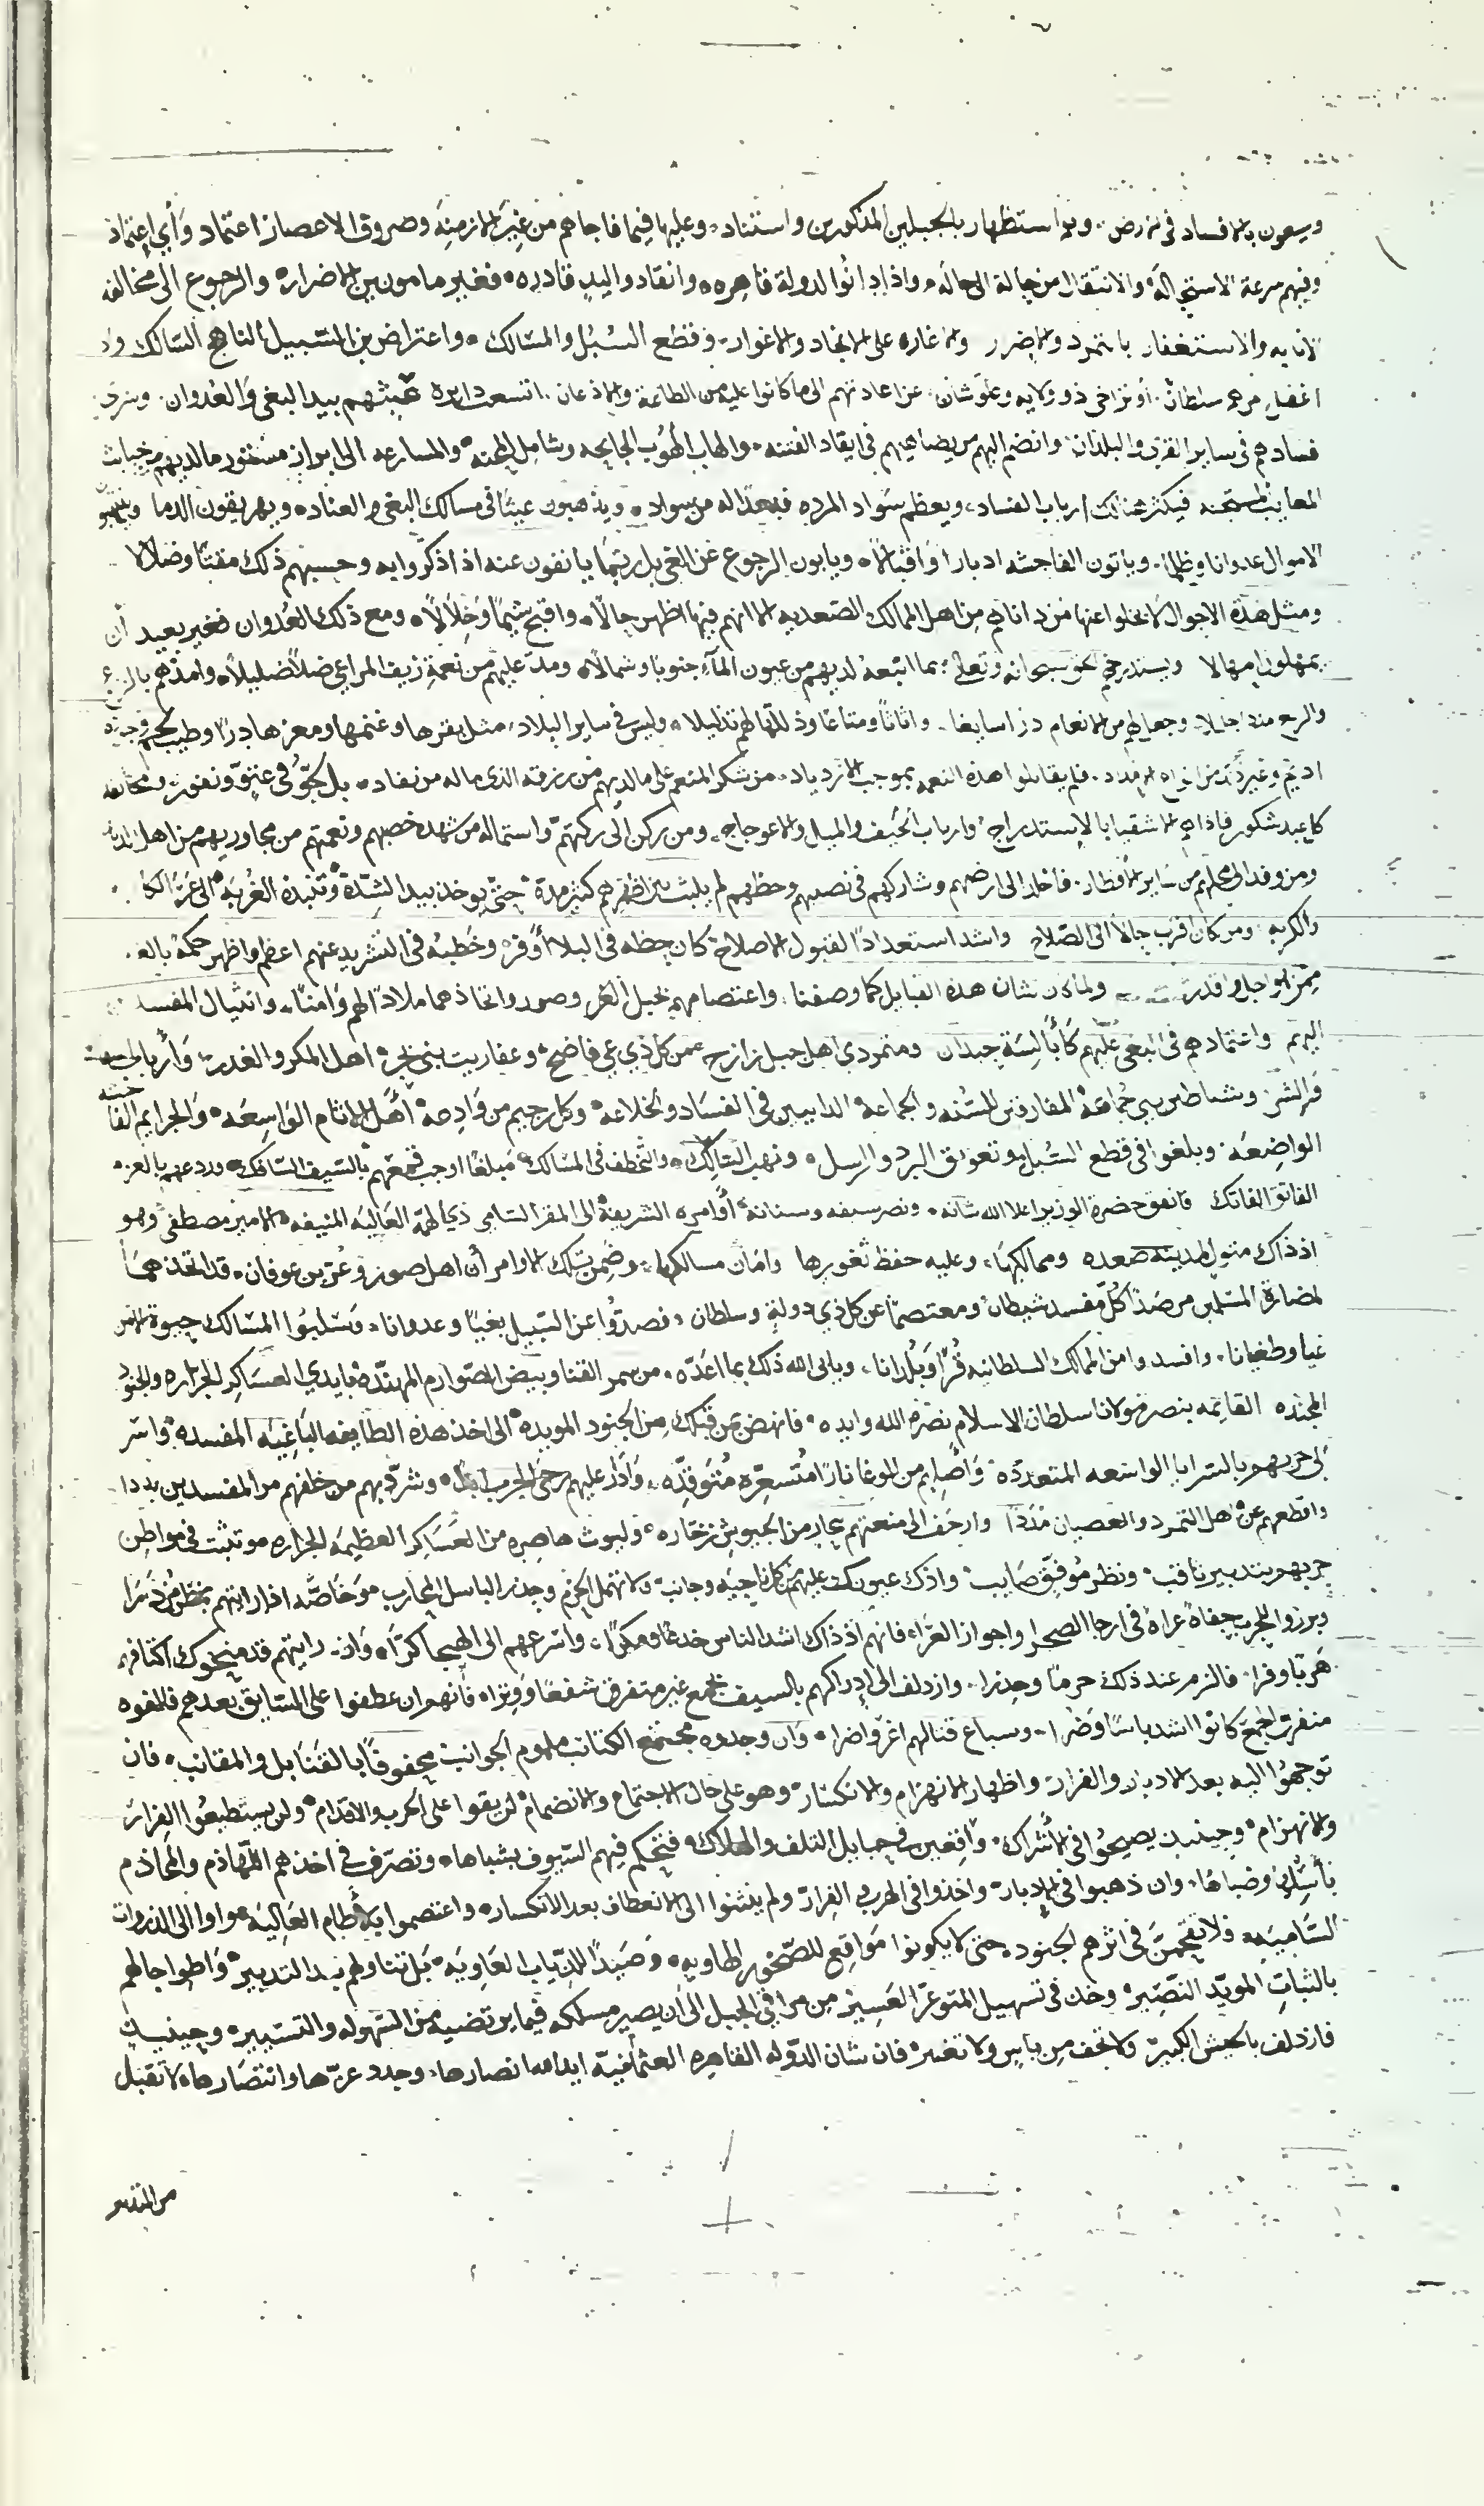 ويسعون بالافساد في الارض، ولهم استظهار بالجبلين المذكورين واستناد، وعليها فيما فاجاهم من غير الازمنة وصروف الاعصار اعتماد وأي اعتماد
وفيهم سرعة الاستحالة والانتقال من حالة الى حاله، واذا دانوا لدولة قاهره، وانقادوا ليد قادره، فغير مامونين الاضرار والرجوع الى مخالفه
الانابه والاستغفار بالتمرد والاضرر والاغاره على الانجاد والاغوار، وقطع السبل والمسالك، واعتراض بن السبيل الناهج السالك
اغضا عنهم سلطان، أو تراخى ذو ولايه وعلو شان، عن اعادتهم الى ما كانوا عليه من الطاعة والاذعان، اتسعت دايره عيثهم بيد البغي والعدوان
فسادهم في ساير القرى والبلدان، وانضم اليهم من يضاهيهم في ايقاد الفتنه، والهاب الهوب الجايحه وشامل المحنه، والمسارعه الى ابراز مستور ما لديهم من خبايث
المعايب فيكثر هنالك ارباب الفساد، ويعظم سواد المرده فبعدا له من سواد، ويذهبون عيثا في مسالك البغي والعناد، ويهريقون الدما وينتهبو
الاموال عدوانا وظلما، وياتون الفاحشه ادبارا واقبالا، ويابون الرجوع عن الغي بل ربما يانفون عنه اذا ذكروا به وحسبهم ذلك مقتا وضلالا
ومثل هذه الاحوال لا يخلوا عنها من داناهم من اهل الممالك الصعديه الا انهم فيها اظهر حالا، واقبح شيما وخلالا، ومع ذلك العدوان فغير بعيد أن
يمهلون امهالا ويستدرجهم الحق سبحانه وتعالى، بما انبعه لديهم من عيون المآء جنوبا وشمالا، ومد عليهم من نعمة ريف المراعي ظلا ظليلا، وامدهم
والريع مددا جليلا، وجعل لهم من الانعام درا سايغا، واثاثا ومتاعا وذللها لهم تذليلا، وليس في ساير البلاد، مثل بقرها وغنمها ومعزها درا وطيب لحم
اديم وغير ذلك، فلم يقابلوا هذه النعمه بموجب الازدياد، من شكر المنعم على ما لديهم من رزقه الذي ما له من نفاد، بل لجوا في عتو ونفور
كل عبد شكور فاذا هم الاشقيا بالاستدراج، وارباب الحيف والميل والاعوجاج، ومن ركن الى بركتهم واستماله من شهد خصبهم ونعمتهم من مجاوريهم من اهل
ومن وفد الى محلهم من ساير الاقطار، فاخلد الى ارضهم وشاركهم في نصيبهم وحظهم لم يلبث بين اظهرهم كثير مدة حتى يوخذ بيد الشدة وتنبذه الغربه الى
والكربه، ومن كان اقرب حالا الى الصلاح واشد استعدادا لقبول الاصلاح كان حظه في البلا أوفر، وخطبه في التشريد عنهم اعظم واظهر حكمة بالغه
ممن هو اجل واقدر ولما كان شان هذه القبايل كما وصفنا، واعتصامهم بجبل العر وصور واتخاذهما ملاذا لهم وامنا، وانثيال المفسدين
اليهم واعتمادهم في البغي عليهم كابالسة جيدان ومتمردي اهل جبل رازح ممن كل ذي غي فاضح، وعفاريت بني بحر اهل المكر والغدر، وأرباب
والشر وشياطين بني جماعة المفارقين للسنه والجماعه، الدايبين في الفساد والخلاعه، وكل رجيم من فادحه أهل الاثام الواسعه، والجرايم الفاحشه
الواضعه، وبلغوا في قطع السبل وتعويق البرد والرسل، ونهب السالك، والتخطف في المسالك، مبلغا اوجب قمعهم بالسيف السافك، وردعهم بالعزم
الفاتق الفاتك فانفق حضرة الوزير اعلا الله شانه، ونصر سيفه وسنانه، أوامره الشريفة الى المقر السامي ذي الهمه العاليه المنيفه، الامير مصطفى وهو
اذ ذاك متول لمدينة صعده وممالكها، وعليه حفظ ثغورها وامان مسالكها، وضمن تلك الاوامر أن اهل صور وعر بن عوفان، قد اتخذهما
لمضارة المسلمين مرصدا كل مفسد شيطان، ومعتصما عن كل ذي دولة وسلطان، فصدوا عن السبيل بغيا وعدوانا، وسلبوا المسالك حيوة الامن
غيا وطغيانا، وافسدوا من الممالك السلطانيه قرا وبلدانا، ويابى الله ذلك بما اعده، من سمر القنا وبيض الصوارم المهنده، بايدي العساكر الجراره والجنود
المجنده القايمه بنصر مولانا سلطان الاسلام نصره الله وايده، فانهض بمن قبلك من الجنود المويده، الى اخذ هذه الطايفه الباغيه المفسده، واسر
الى حربهم بالسرايا الواسعه المتعدده، وأصلهم من الوغا نارا متسعره متوقده، وأدر عليهم رحى الحرب، وشرد بهم من خلفهم من المفسدين بددا
واقطعهم عن اهل التمرد والعصيان مددا وارجف الى منعتهم ببحار من الجيوش زخاره، وليوث هاصره من العساكر العظيمه الجراره، وتثبت في مواطن
حربهم بتدبير ثاقب، ونظر موفق صايب، واذك عيونك عليهم من كل ناحيه وجانب، ولا تهمل الحزم وحذر الباسل المحارب، وخاصه اذا رايتهم
وبرزوا للحرب حفاة عراة في ارجا الصحرا واجواز العراء، فانهم اذ ذاك اشد الناس خدعا ومكرا، واسرعهم الى الهيجا كرا، وان رايتهم قد منحوك اكتافهم
هربا وفرا، فالزم عند ذلك حزما وحذرا، وازدلف الى إدراكهم بالسيف بجمع غير متفرق شفعا ووترا، فانهم ان عطفوا على السابق بعدهم فالفوه
متفرق الجمع كانوا اشد باسا وضرا، وسباع قتالهم اغر واضرا، وان وجدوه مجتمع الكتايب ململم الجوانب محفوفا بالقنابل والمقانب، فان
توجهوا اليه بعد الادبار والفرار واظهار الانهزام والانكسار، وهو على حال الاجتماع والانضمام، لن يقوا على الحرب والاقدام، ولن يستطيعوا الفرار
والانهزام، وحينيذ يصيحوا في الاشراك، واقعين في حبايل التلف والهلاك، فتحكم فيهم السيوف بشباها، وتصرف في اخذهم اللهاذم والمخاذم
باسلها وضباها، وان ذهبوا في الادبار، واخذوا في الهرب والفرار ولم ينثنوا الى الانعطاف بعد الانكسار، واعتصموا بالاطام العاليه، واوا الى الذروات
السامية، فلا تقحمن في اثرهم الجنود، حتى لا يكونوا مواقع للصخور الهاويه، وصيدا للذياب العاويه، بل تناولهم بيد التدبير، واطوا جالهم
بالثبات المويد النصير، وخذ في تسهيل المتوعر العسير من مراقي الجبل الى ان يصير مسلكه فيما يرتضيه من السهوله والتيسير، وحينيذ
فازدلف بالجيش الكبير ولا تخف من باس ولا تغير، فان شان الدوله القاهره العثمانية ايد الله انصارها، وجدد عزها وانتصارها، لا تقبل